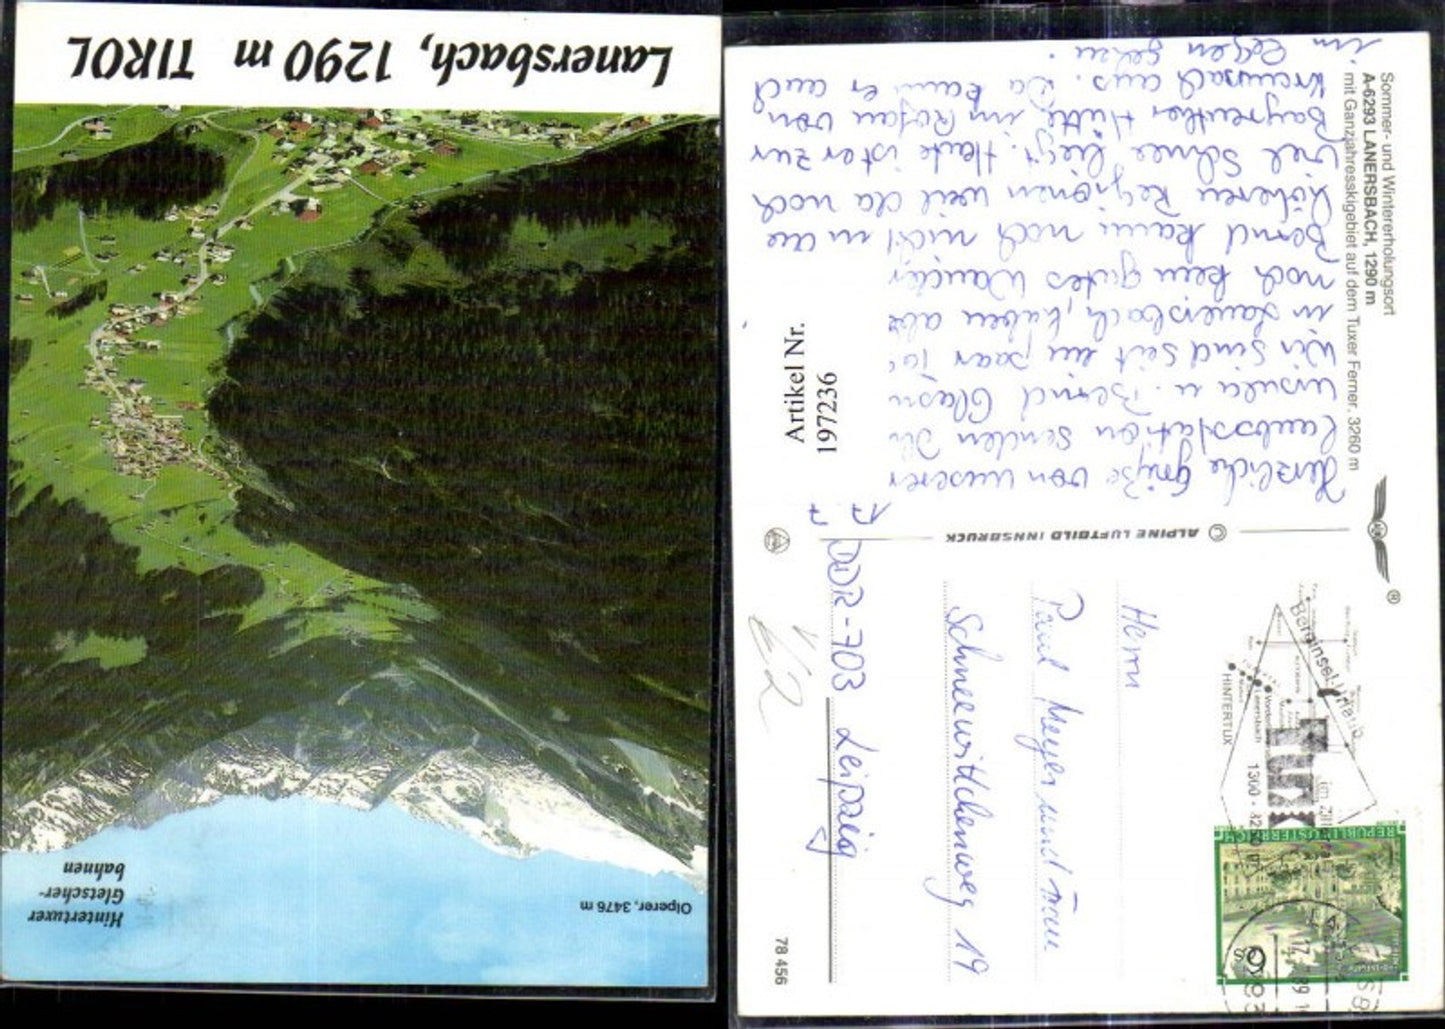 Lanersbach, 1290 m TIROL
Olperer, 3476 m
Hintertuxer
Gletscher-
bahnen
Sommer- und Wintererholungsort
A-6293 LANERSBACH, 1290 m
mit Ganzjahresskigebiet auf dem Tuxer Ferner, 3260 m
17.7
Herzliche Grüße von unserer
senden Dir
u. Bernd
Wir sind seit ein paar
in Lanersbach, haben aber
noch kein gutes
Bernd kann noch nicht in die
höheren Regionen weil da noch
viel Schnee liegt. Heute ist er zur
Bayreuther Hütte im Rofan von
Kramsach aus. Da kann er auch
im Regen gehen.
Artikel Nr.
197236
© ALPINE LUFTBILD INNSBRUCK
®
Herrn
Paul Meyer und Frau
Schneewittchenweg 19
DDR-703 Leipzig
78 456
HINTERTUX
Lanersbach
REPUBLIK ÖSTERREICH